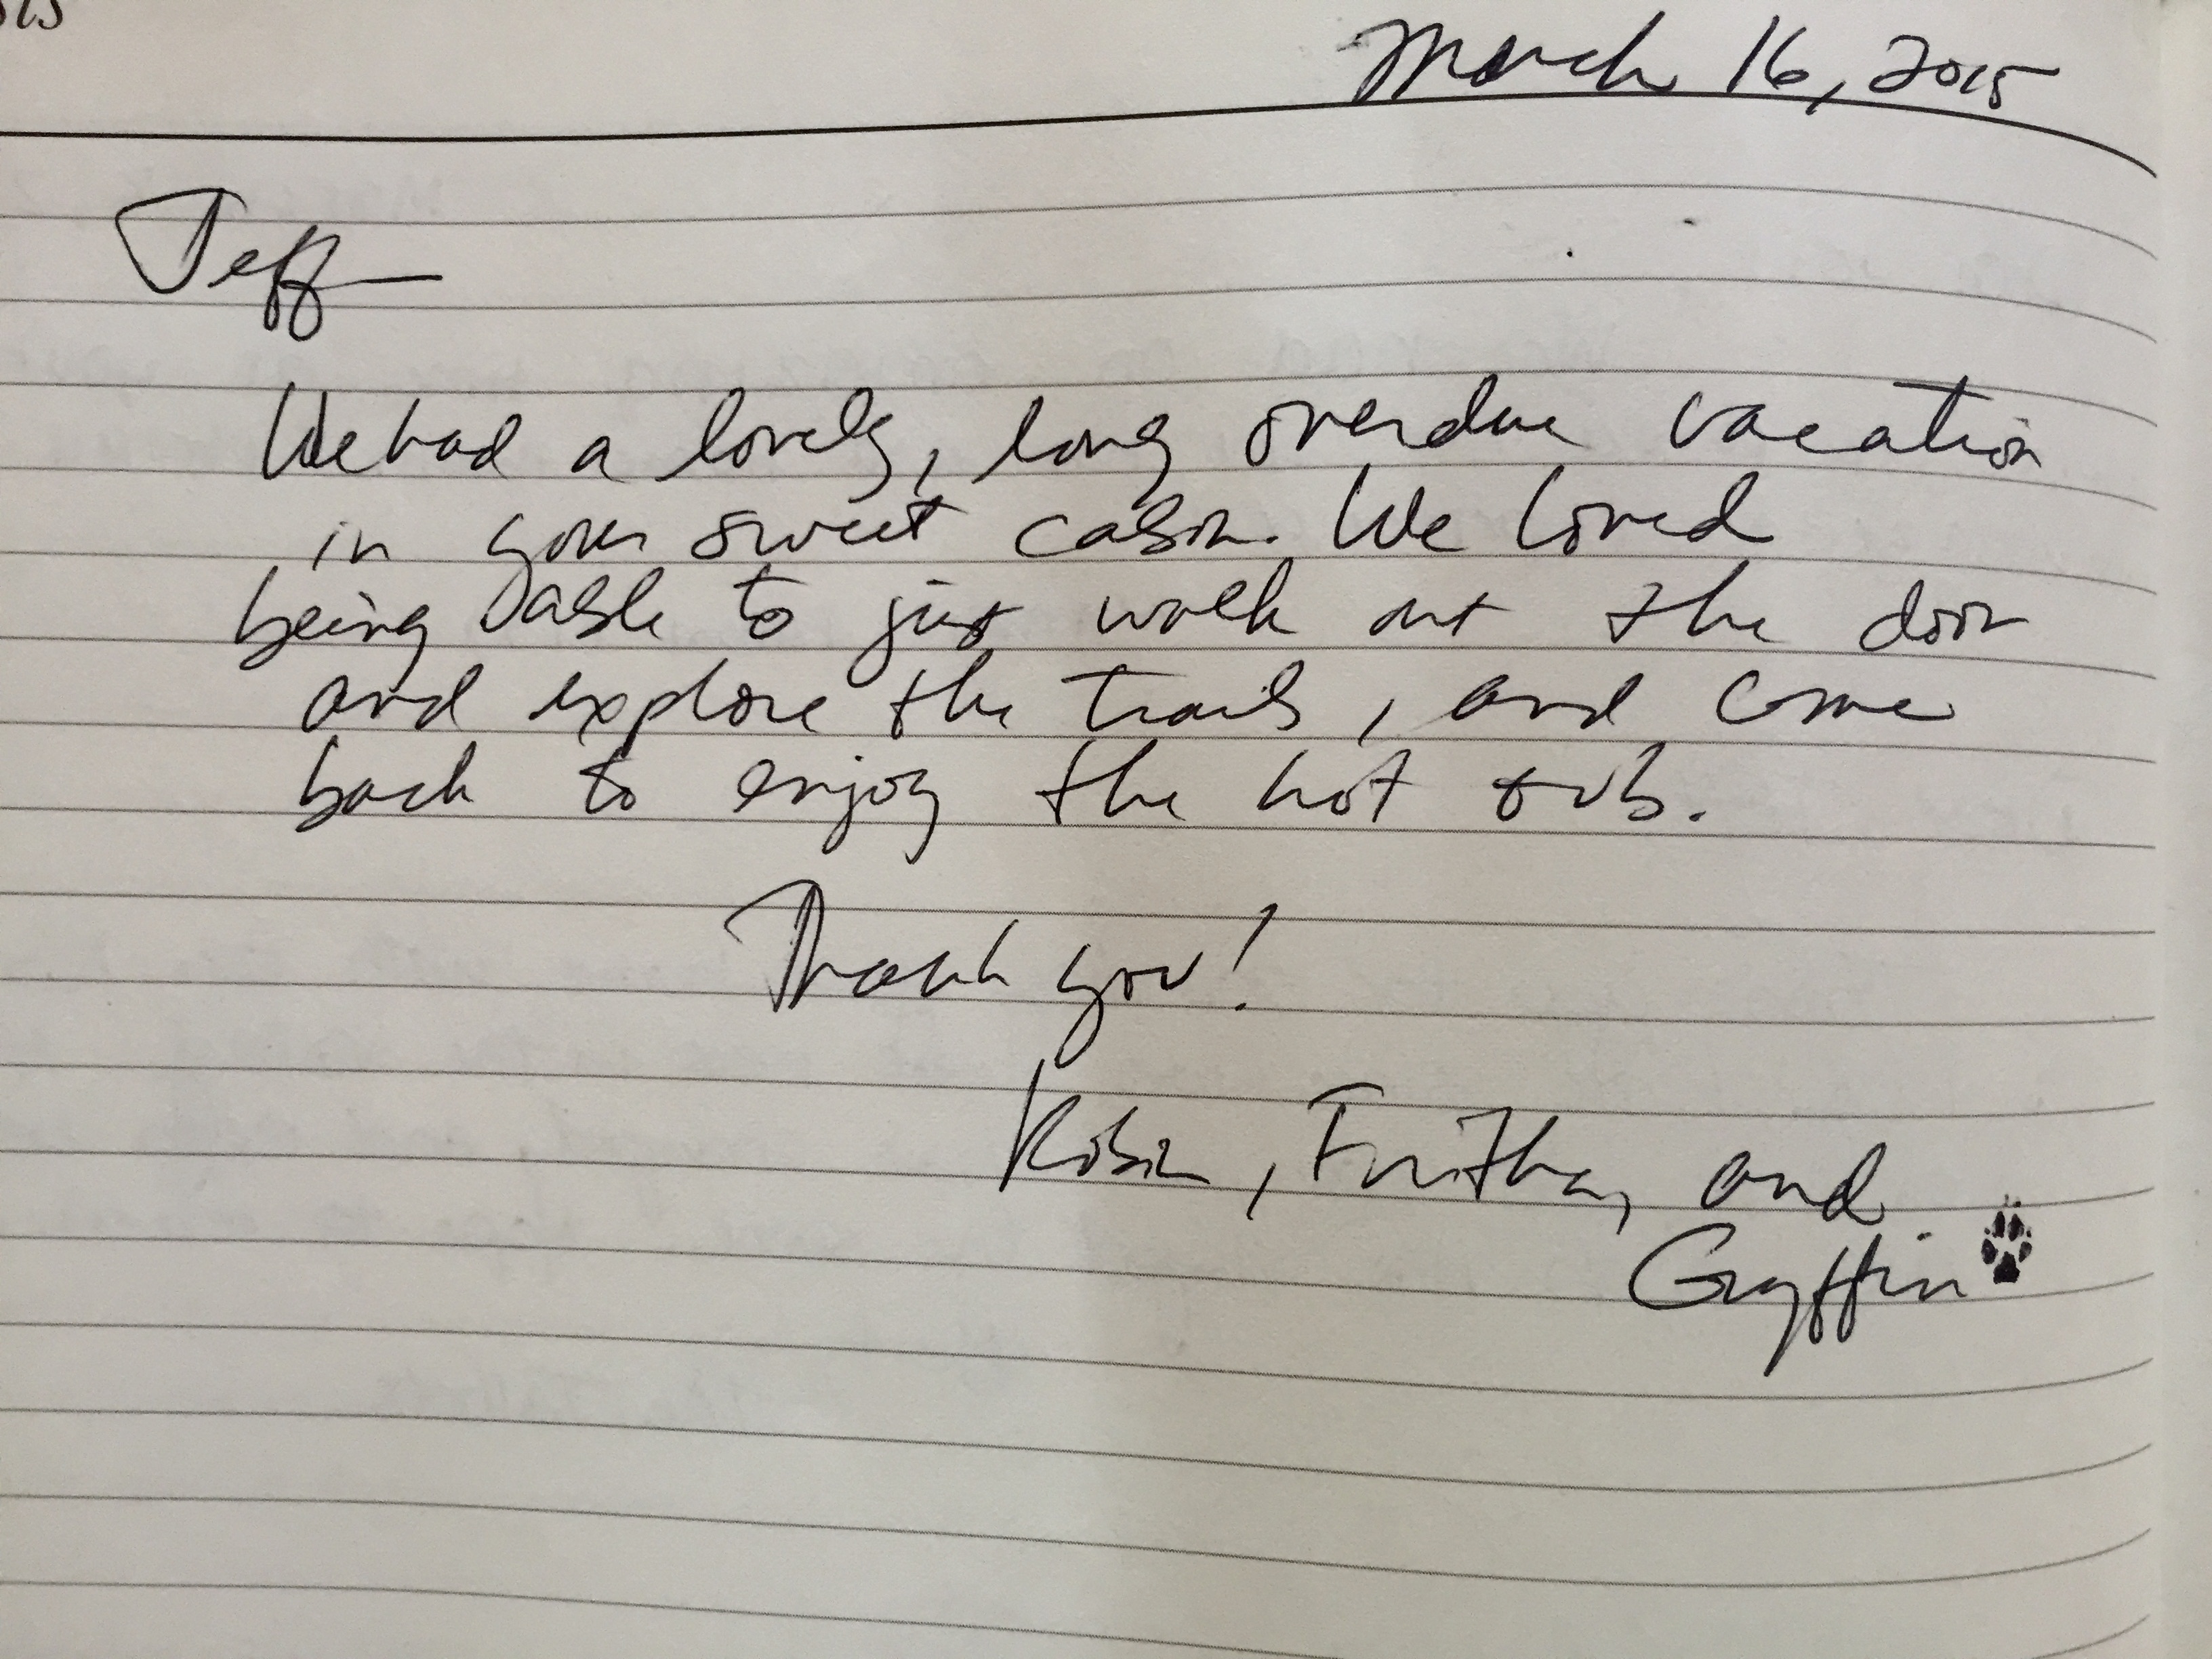 March 16, 2015
Jeff —
We had a lovely, long overdue vacation
in your sweet cabin. We loved
being able to just walk out the door
and explore the trails, and come
back to enjoy the hot tub.
Thank you!
Robin, Fritha, and
Gryffin